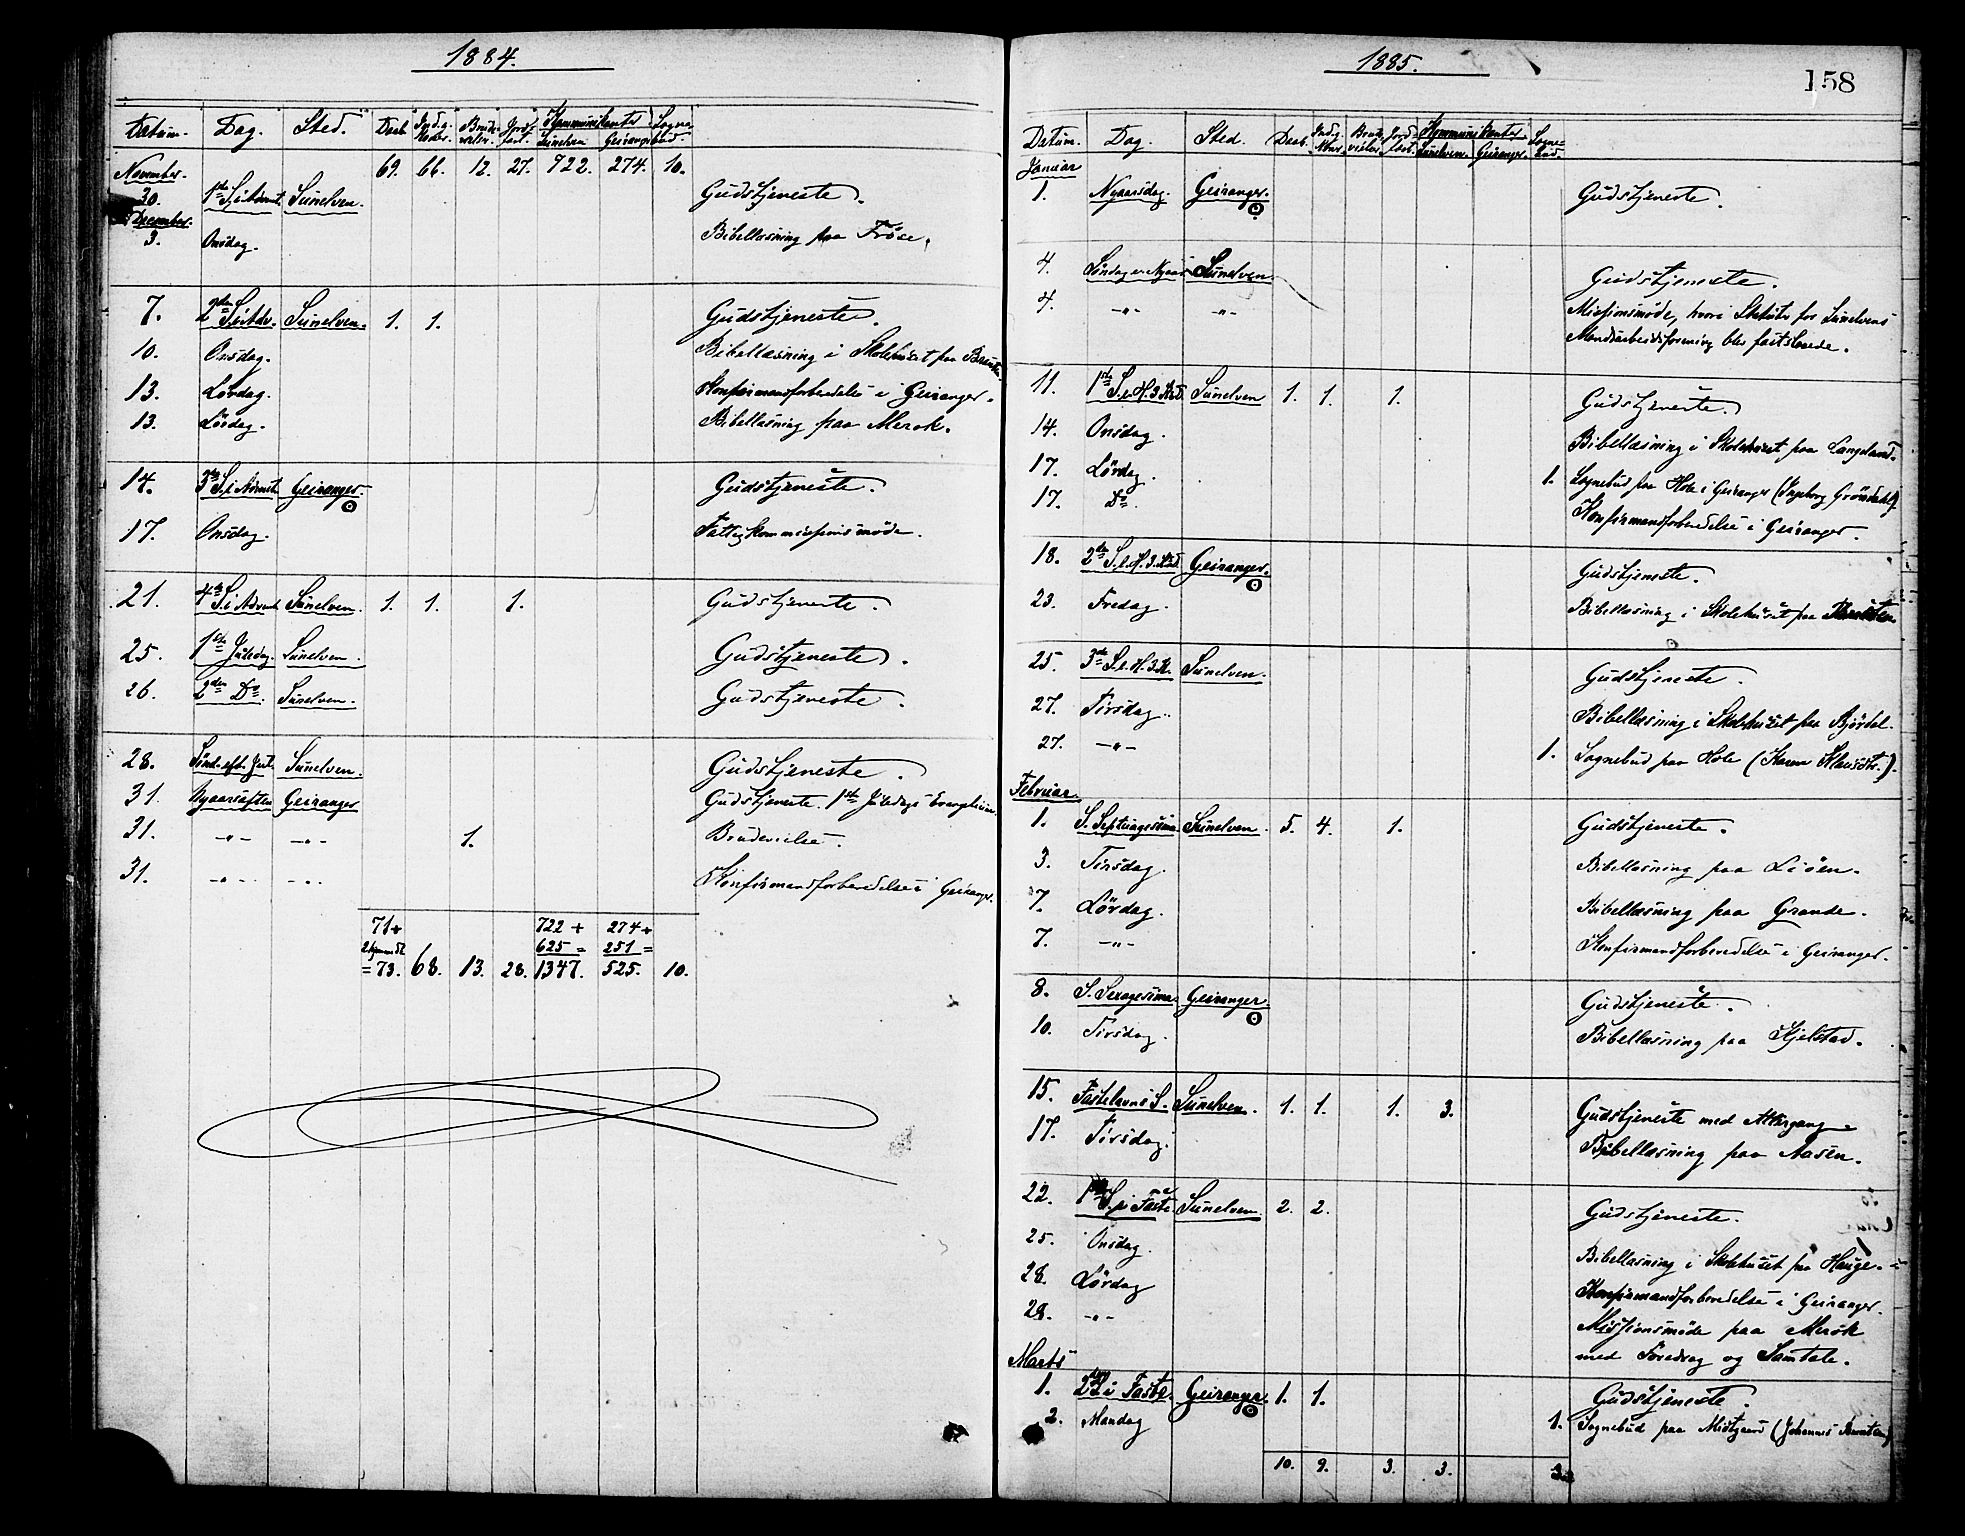 1884.
Datum. Dag. Sted. Daab Indg. Koner. Brude- vielser. Jord- fæst. Kommunikanter Sunelven Geiranger Sogne- bud.
November. 69. 66. 12. 27. 722. 274. 10.
30. 1ste S. i Advent Sunelven. Gudstjeneste.
December.
3. Onsdag. Bibellæsning paa Frøse.
7. 2den S. i Adv. Sunelven. 1. 1. Gudstjeneste.
10. Onsdag. Bibellæsning i Skolehuset paa
13. Lördag. Konfirmandforberedelse i Geiranger.
13. Lördag. Bibellæsning paa Merok.
14. 3die S. i Advent Geiranger. Gudstjeneste.
17. Onsdag. Fattigkommissionsmöde.
21. 4de S. i Advent Sunelven. 1. 1. 1. Gudstjeneste.
25. 1ste Juledag. Sunelven. Gudstjeneste.
26. 2den Do. Sunelven. Gudstjeneste.
28. Sönd. eft. Jul. Sunelven. Gudstjeneste.
31. Nyaarsaften Geiranger Gudstjeneste. 1ste Juledags Evangelium.
31. -"- -"- 1. Brudevielse.
31. -"- -"- Konfirmandforberedelse i Geiranger.
71+ 722+ 274+
625= 251=
=73. 68. 13. 28. 1347. 525. 10.
1885.
158
Datum. Dag. Sted. Daab. Indg. Koner. Brude- vielser. Jord- fæst. Kommunikanter. Sunelven. Geiranger. Sogne- bud.
Januar
1. Nyaarsdag. Geiranger. Gudstjeneste.
4. Söndag e. Nyaar Sunelven. Gudstjeneste.
4. -"- -"- Missionsmöde, hvori Statuter for Sunelvens
Mandsarbeidsforening blev fastsatte.
11. 1ste S. e. H. 3 Kd. Sunelven 1. 1. 1. Gudstjeneste.
14. Onsdag. Bibellæsning i Skolehuset paa Langeland.
17. Lördag. 1. Sognebud paa Hole i Geiranger (Ingeborg Gröndahl)
17. Do. Konfirmandforberedelse i Geiranger.
18. 2den S. e. H. 3. Kd. Geiranger. Gudstjeneste.
23. Fredag. Bibellæsning i Skolehuset paa
25. 3die S. e. H. 3. K. Sunelven. Gudstjeneste.
27. Tirsdag. Bibellæsning i Skolehuset paa Bjørdal.
27. -"- 1. Sognebud paa Hole (Karen Klausdtr.).
Februar.
1. S. Septuagesima Sunelven. 5. 4. 1. Gudstjeneste.
3. Tirsdag. Bibellæsning paa Liöen.
7. Lördag. Bibellæsning paa Grande.
7. -"- Konfirmandforberedelse i Geiranger.
8. S. Sexagesima Geiranger. Gudstjeneste.
10. Tirsdag. Bibellæsning paa Kjelstad.
15. Fastelavns S. Sunelven. 1. 1. 1. 3. Gudstjeneste med Altergang.
17. Tirsdag. Bibellæsning paa Aasen.
22. 1ste S. i Faste Sunelven. 2. 2. Gudstjeneste.
25. Onsdag. Bibellæsning i Skolehuset paa Hauge.
28. Lördag Konfirmandforberedelse i Geiranger.
28. -"- Missionsmöde paa Merok
med Foredrag og Samtale.
Marts
1. 2den S. i Faste. Geiranger. 1. 1. Gudstjeneste.
2. Mandag 1. Sognebud paa Mistgaard (Johannes
10. 9. 3. 3. 3.